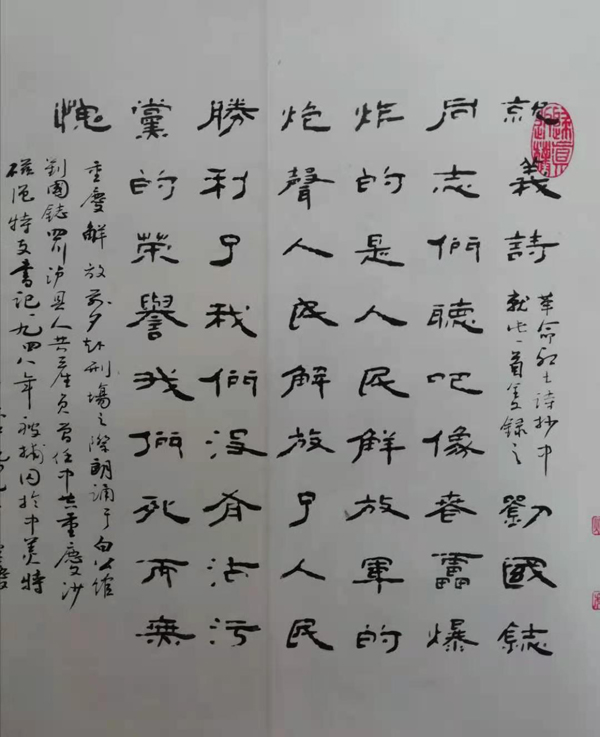 就義詩
革命烈士诗抄中
就此一首爰録之
劉國鋕
同志們聽吧像春雷爆
炸的是人民解放軍的
炮聲人民解放了人民
勝利了我們没有沾污
黨的榮譽我們死而無
愧
重慶解放前夕赴刑場之際朗誦于白公馆
劉國鋕四川泸县人共産党员曾任中共重慶沙
磁區特支書記一九四八年被捕囚於中美特